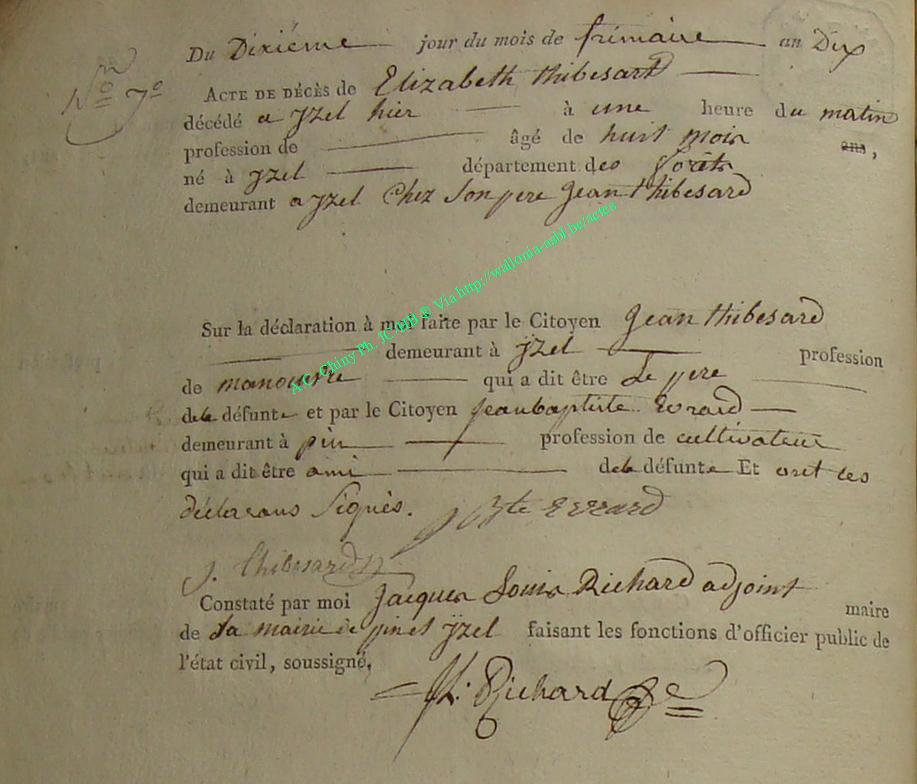 Du Dixiéme jour du mois de frimaire an Dix
No 7º
ACTE DE DÉCÈS de Elizabeth thibesard
décédé a Yzel hier à une heure du matin
profession de âgé de huit mois ans,
né à yzel département des forêts
demeurant a yzel Chez Son pere Jean thibesard
Sur la déclaration à moi faite par le Citoyen Jean thibesard
demeurant à yzel profession
de manouvre qui a dit être Le pere
de la défunte et par le Citoyen jeanbaptiste Evrard
demeurant à pin profession de cultivateur
qui a dit être ami de la défunte Et ont les
déclarans Signés. J Bte Evrard
J. thibesard
Constaté par moi Jacques Louis Richard adjoint maire
de La mairie de pin et Yzel faisant les fonctions d'officier public de
l'état civil, soussigné,
JL. Richard
A.C. Chiny Ph. JC HB @ Via http://wallonia-asbl.be/actes